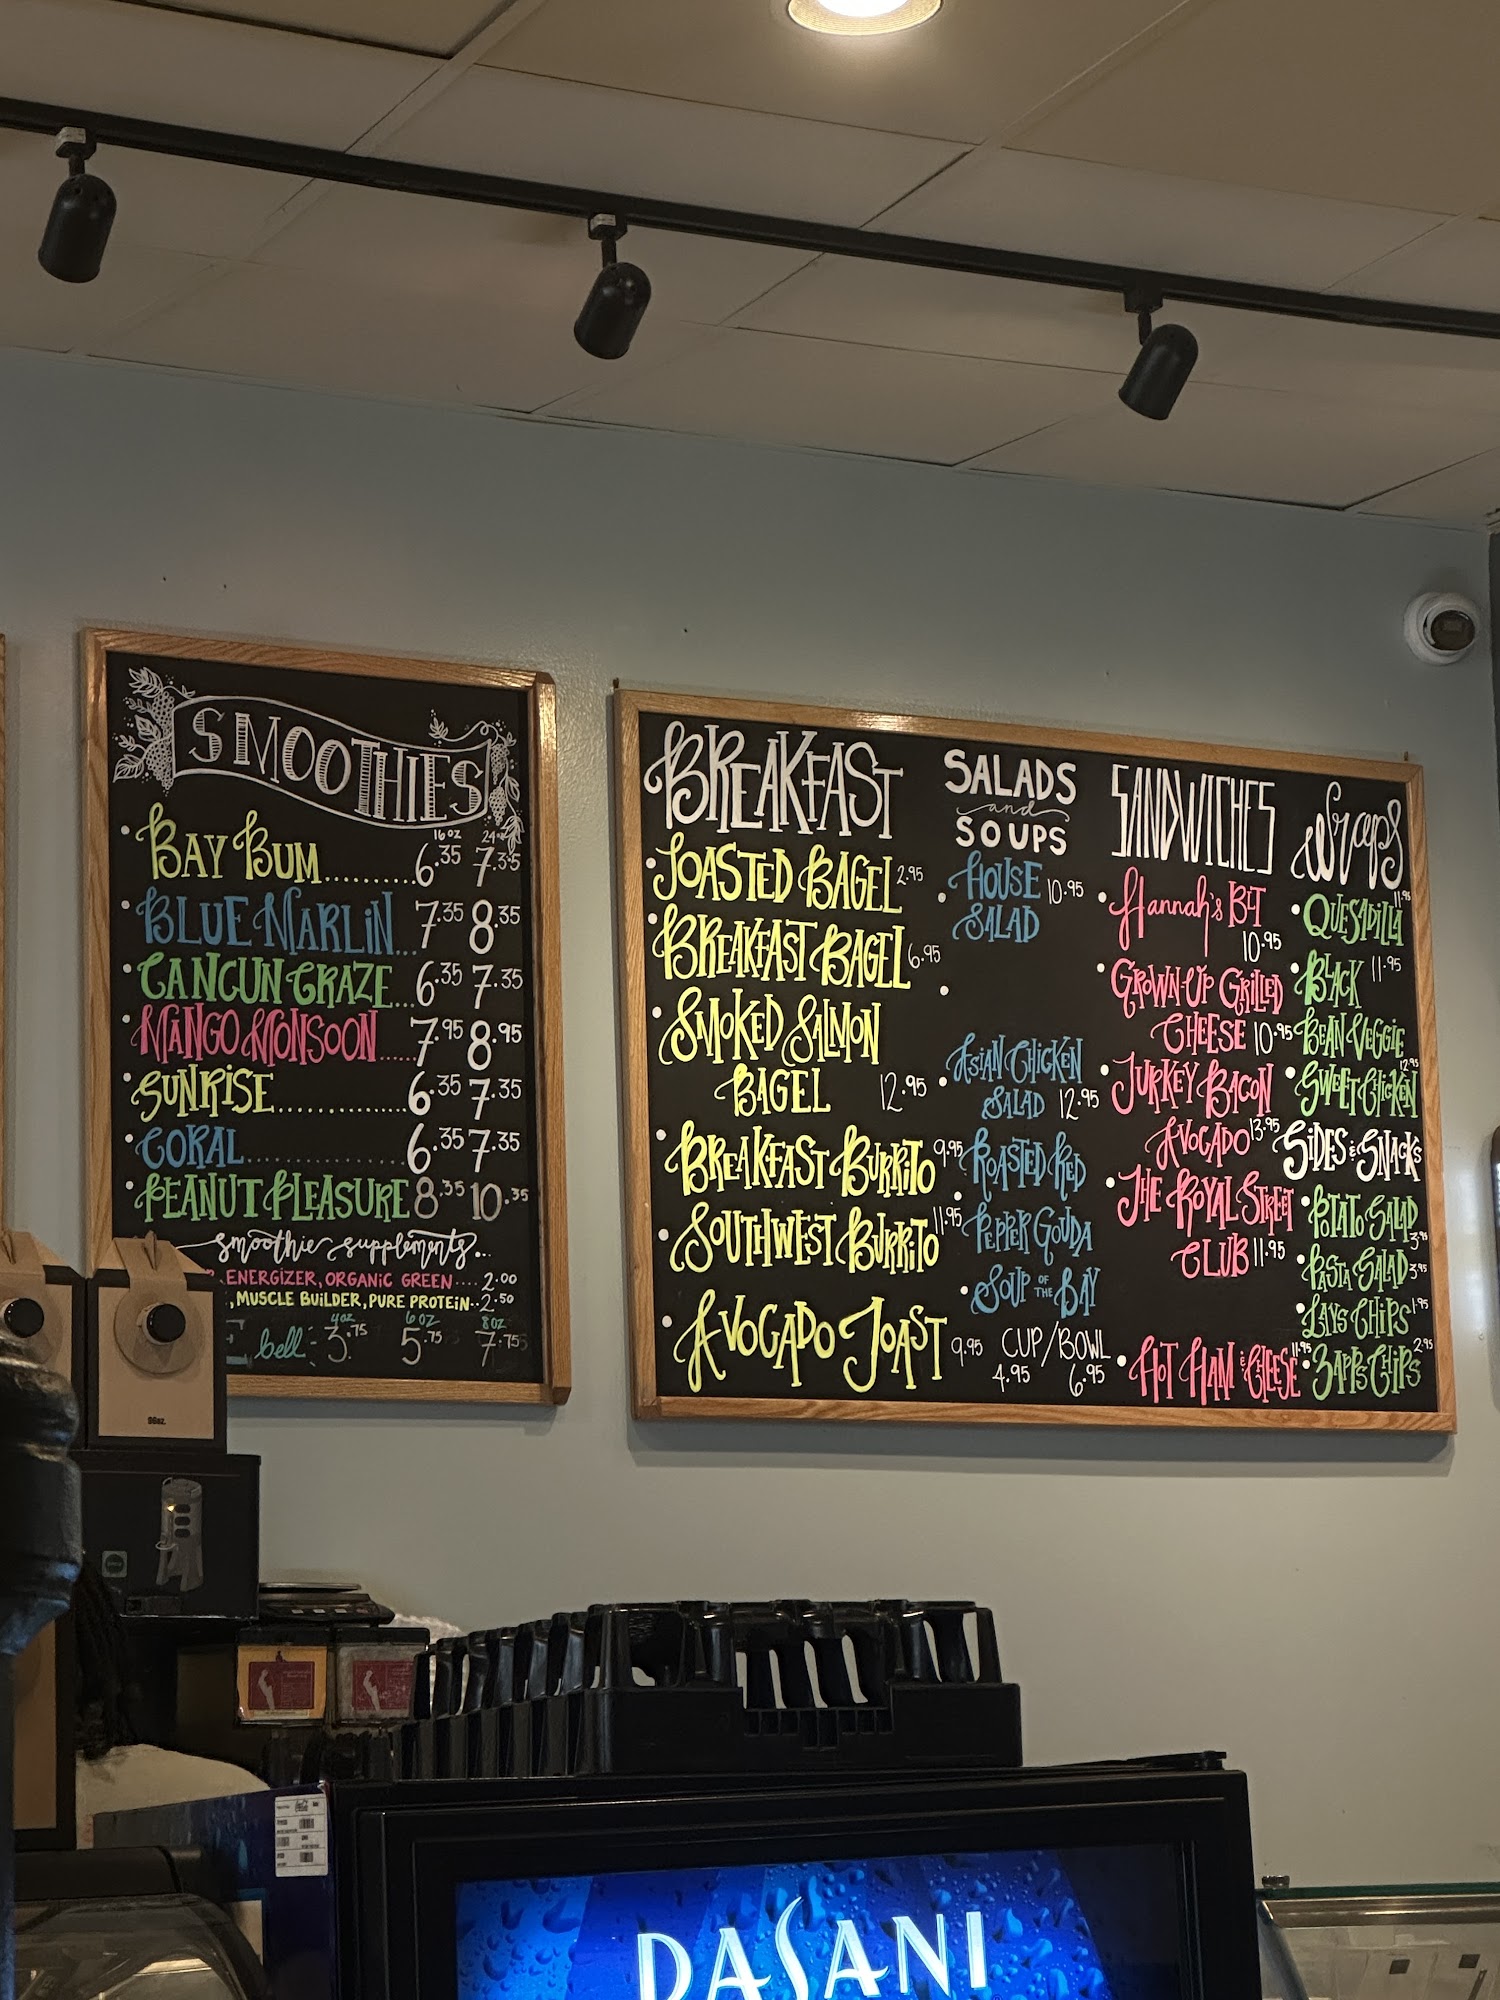 SMOOTHIES
16 oz 24
• BAY BUM.......... 6.35 7.35
• BLUE MARLIN... 7.35 8.35
• CANCUN CRAZE... 6.35 7.35
• MANGO MONSOON...... 7.95 8.95
• SUNRISE.............. 6.35 7.35
• CORAL.............. 6.35 7.35
• PEANUT PLEASURE 8.35 10.35
smoothie supplements...
ENERGIZER, ORGANIC GREEN.... 2.00
, MUSCLE BUILDER, PURE PROTEIN.. 2.50
4oz 6oz 8oz
bell: 3.75 5.75 7.75
BREAKFAST
• TOASTED BAGEL 2.95
• BREAKFAST BAGEL 6.95
• SMOKED SALMON
BAGEL 12.95
• BREAKFAST BURRITO 9.95
• SOUTHWEST BURRITO 11.95
• AVOCADO TOAST 9.95
SALADS
and
SOUPS
• HOUSE 10.95
SALAD
•
• ASIAN CHICKEN
SALAD 12.95
• ROASTED RED
PEPPER GOUDA
• SOUP OF THE BAY
CUP/BOWL
4.95 6.95
SANDWICHES
• Hannah's BLT
10.95
• GROWN-UP GRILLED
CHEESE 10.95
• TURKEY BACON
AVOCADO 13.95
• THE ROYAL STREET
CLUB 11.95
• HOT HAM & CHEESE 11.95
Wraps
• QUESADILLA 11.95
• BLACK 11.95
BEAN VEGGIE
• SWEET CHICKEN 12.95
SIDES & SNACKS
• POTATO SALAD 3.95
• PASTA SALAD 3.95
• LAYS CHIPS 1.95
• ZAPPS CHIPS 2.95
96oz.
DASANI